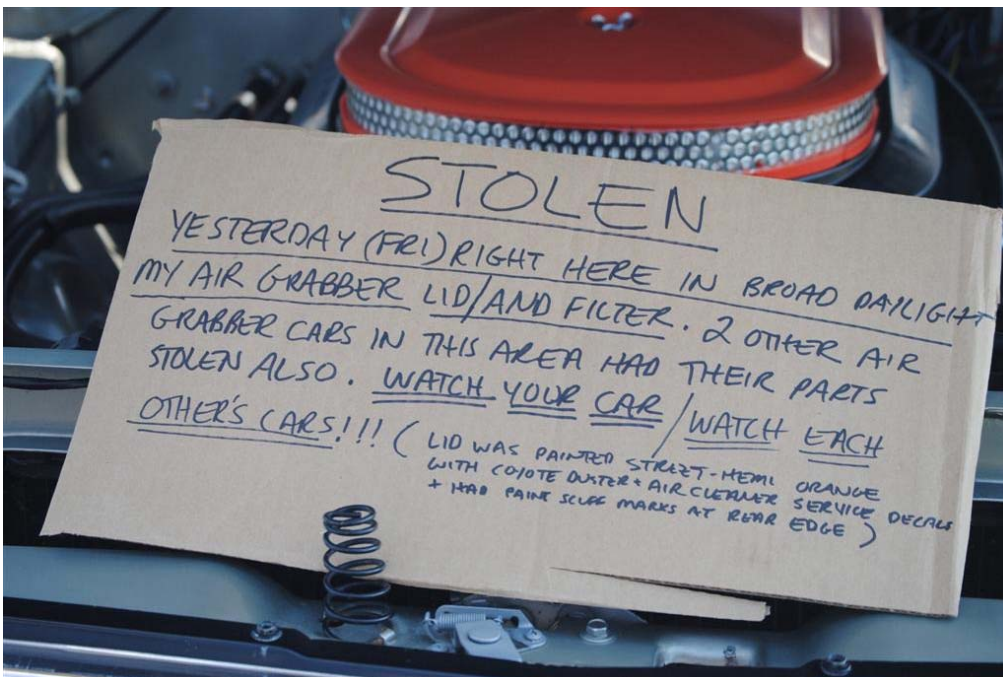 STOLEN
YESTERDAY (FRI) RIGHT HERE IN BROAD DAYLIGHT
MY AIR GRABBER LID/AND FILTER. 2 OTHER AIR
GRABBER CARS IN THIS AREA HAD THEIR PARTS
STOLEN ALSO. WATCH YOUR CAR/WATCH EACH
OTHER'S CARS!!! (LID WAS PAINTED STREET-HEMI ORANGE
WITH COYOTE DUSTER + AIR CLEANER SERVICE DECALS
+ HAD PAINT SCUFF MARKS AT REAR EDGE)